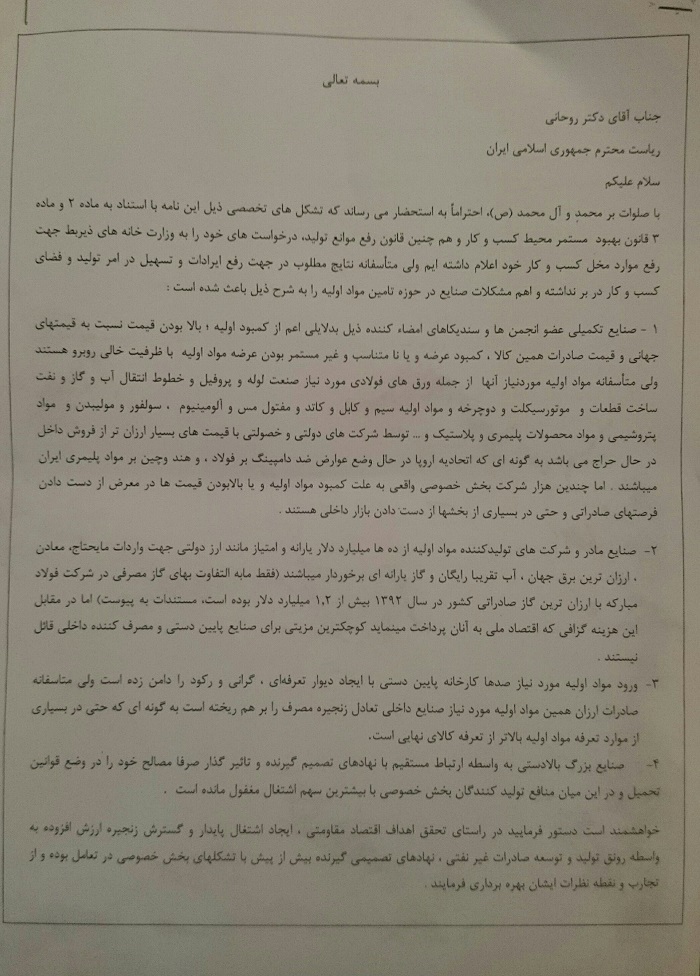 بسمه تعالی
جناب آقای دکتر روحانی
ریاست محترم جمهوری اسلامی ایران
سلام علیکم
با صلوات بر محمد و آل محمد (ص)، احتراماً به استحضار می رساند که تشکل های تخصصی ذیل این نامه با استناد به ماده ۲ و ماده
۳ قانون بهبود مستمر محیط کسب و کار و هم چنین قانون رفع موانع تولید، درخواست های خود را به وزارت خانه های ذیربط جهت
رفع موارد مخل کسب و کار خود اعلام داشته ایم ولی متأسفانه نتایج مطلوب در جهت رفع ایرادات و تسهیل در امر تولید و فضای
کسب و کار در بر نداشته و اهم مشکلات صنایع در حوزه تامین مواد اولیه را به شرح ذیل باعث شده است :
۱ - صنایع تکمیلی عضو انجمن ها و سندیکاهای امضاء کننده ذیل بدلایلی اعم از کمبود اولیه ؛ بالا بودن قیمت نسبت به قیمتهای
جهانی و قیمت صادرات همین کالا ، کمبود عرضه و یا نا متناسب و غیر مستمر بودن عرضه مواد اولیه با ظرفیت خالی روبرو هستند
ولی متأسفانه مواد اولیه موردنیاز آنها از جمله ورق های فولادی مورد نیاز صنعت لوله و پروفیل و خطوط انتقال آب و گاز و نفت
ساخت قطعات و موتورسیکلت و دوچرخه و مواد اولیه سیم و کابل و کاتد و مفتول مس و آلومینیوم ، سولفور و مولیبدن و مواد
پتروشیمی و مواد محصولات پلیمری و پلاستیک و ... توسط شرکت های دولتی و خصولتی با قیمت های بسیار ارزان تر از فروش داخل
در حال حراج می باشد به گونه ای که اتحادیه اروپا در حال وضع عوارض ضد دامپینگ بر فولاد ، و هند وچین بر مواد پلیمری ایران
میباشند . اما چندین هزار شرکت بخش خصوصی واقعی به علت کمبود مواد اولیه و یا بالابودن قیمت ها در معرض از دست دادن
فرصتهای صادراتی و حتی در بسیاری از بخشها از دست دادن بازار داخلی هستند .
۲- صنایع مادر و شرکت های تولیدکننده مواد اولیه از ده ها میلیارد دلار یارانه و امتیاز مانند ارز دولتی جهت واردات مایحتاج، معادن
، ارزان ترین برق جهان ، آب تقریبا رایگان و گاز یارانه ای برخوردار میباشند (فقط مابه التفاوت بهای گاز مصرفی در شرکت فولاد
مبارکه با ارزان ترین گاز صادراتی کشور در سال ۱۳۹۲ بیش از ۱,۲ میلیارد دلار بوده است، مستندات به پیوست) اما در مقابل
این هزینه گزافی که اقتصاد ملی به آنان پرداخت مینماید کوچکترین مزیتی برای صنایع پایین دستی و مصرف کننده داخلی قائل
نیستند .
۳- ورود مواد اولیه مورد نیاز صدها کارخانه پایین دستی با ایجاد دیوار تعرفه‌ای ، گرانی و رکود را دامن زده است ولی متاسفانه
صادرات ارزان همین مواد اولیه مورد نیاز صنایع داخلی تعادل زنجیره مصرف را بر هم ریخته است به گونه ای که حتی در بسیاری
از موارد تعرفه مواد اولیه بالاتر از تعرفه کالای نهایی است.
۴- صنایع بزرگ بالادستی به واسطه ارتباط مستقیم با نهادهای تصمیم گیرنده و تاثیر گذار صرفا مصالح خود را در وضع قوانین
تحمیل و در این میان منافع تولید کنندگان بخش خصوصی با بیشترین سهم اشتغال مغفول مانده است .
خواهشمند است دستور فرمایید در راستای تحقق اهداف اقتصاد مقاومتی ، ایجاد اشتغال پایدار و گسترش زنجیره ارزش افزوده به
واسطه رونق تولید و توسعه صادرات غیر نفتی ، نهادهای تصمیمی گیرنده بیش از پیش با تشکلهای بخش خصوصی در تعامل بوده و از
تجارب و نقطه نظرات ایشان بهره برداری فرمایند .